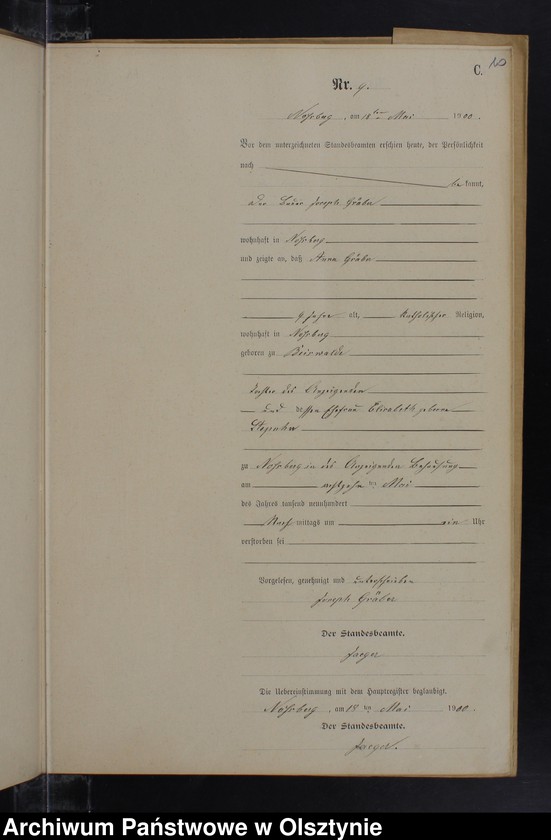 C.
Nr. 9.
am 18ten Mai 1900.
Vor dem unterzeichneten Standesbeamten erschien heute, der Persönlichkeit
nach
be kannt,
der Joseph Gräber
wohnhaft in
und zeigte an, daß Anna Gräber
Jahre alt, katholischer Religion,
wohnhaft in
geboren zu Beiswalde
Tochter des Anzeigenden
und dessen Ehefrau Elisabeth geborene
zu in des Anzeigenden Behausung
am achtzehnten Mai
des Jahres tausend neunhundert
Nach mittags um ein Uhr
verstorben sei
Vorgelesen, genehmigt und unterschrieben
Joseph Gräber
Der Standesbeamte.
Jaeger
Die Uebereinstimmung mit dem Hauptregister beglaubigt.
am 18ten Mai 1900.
Der Standesbeamte.
Jaeger.
Archiwum Państwowe w Olsztynie